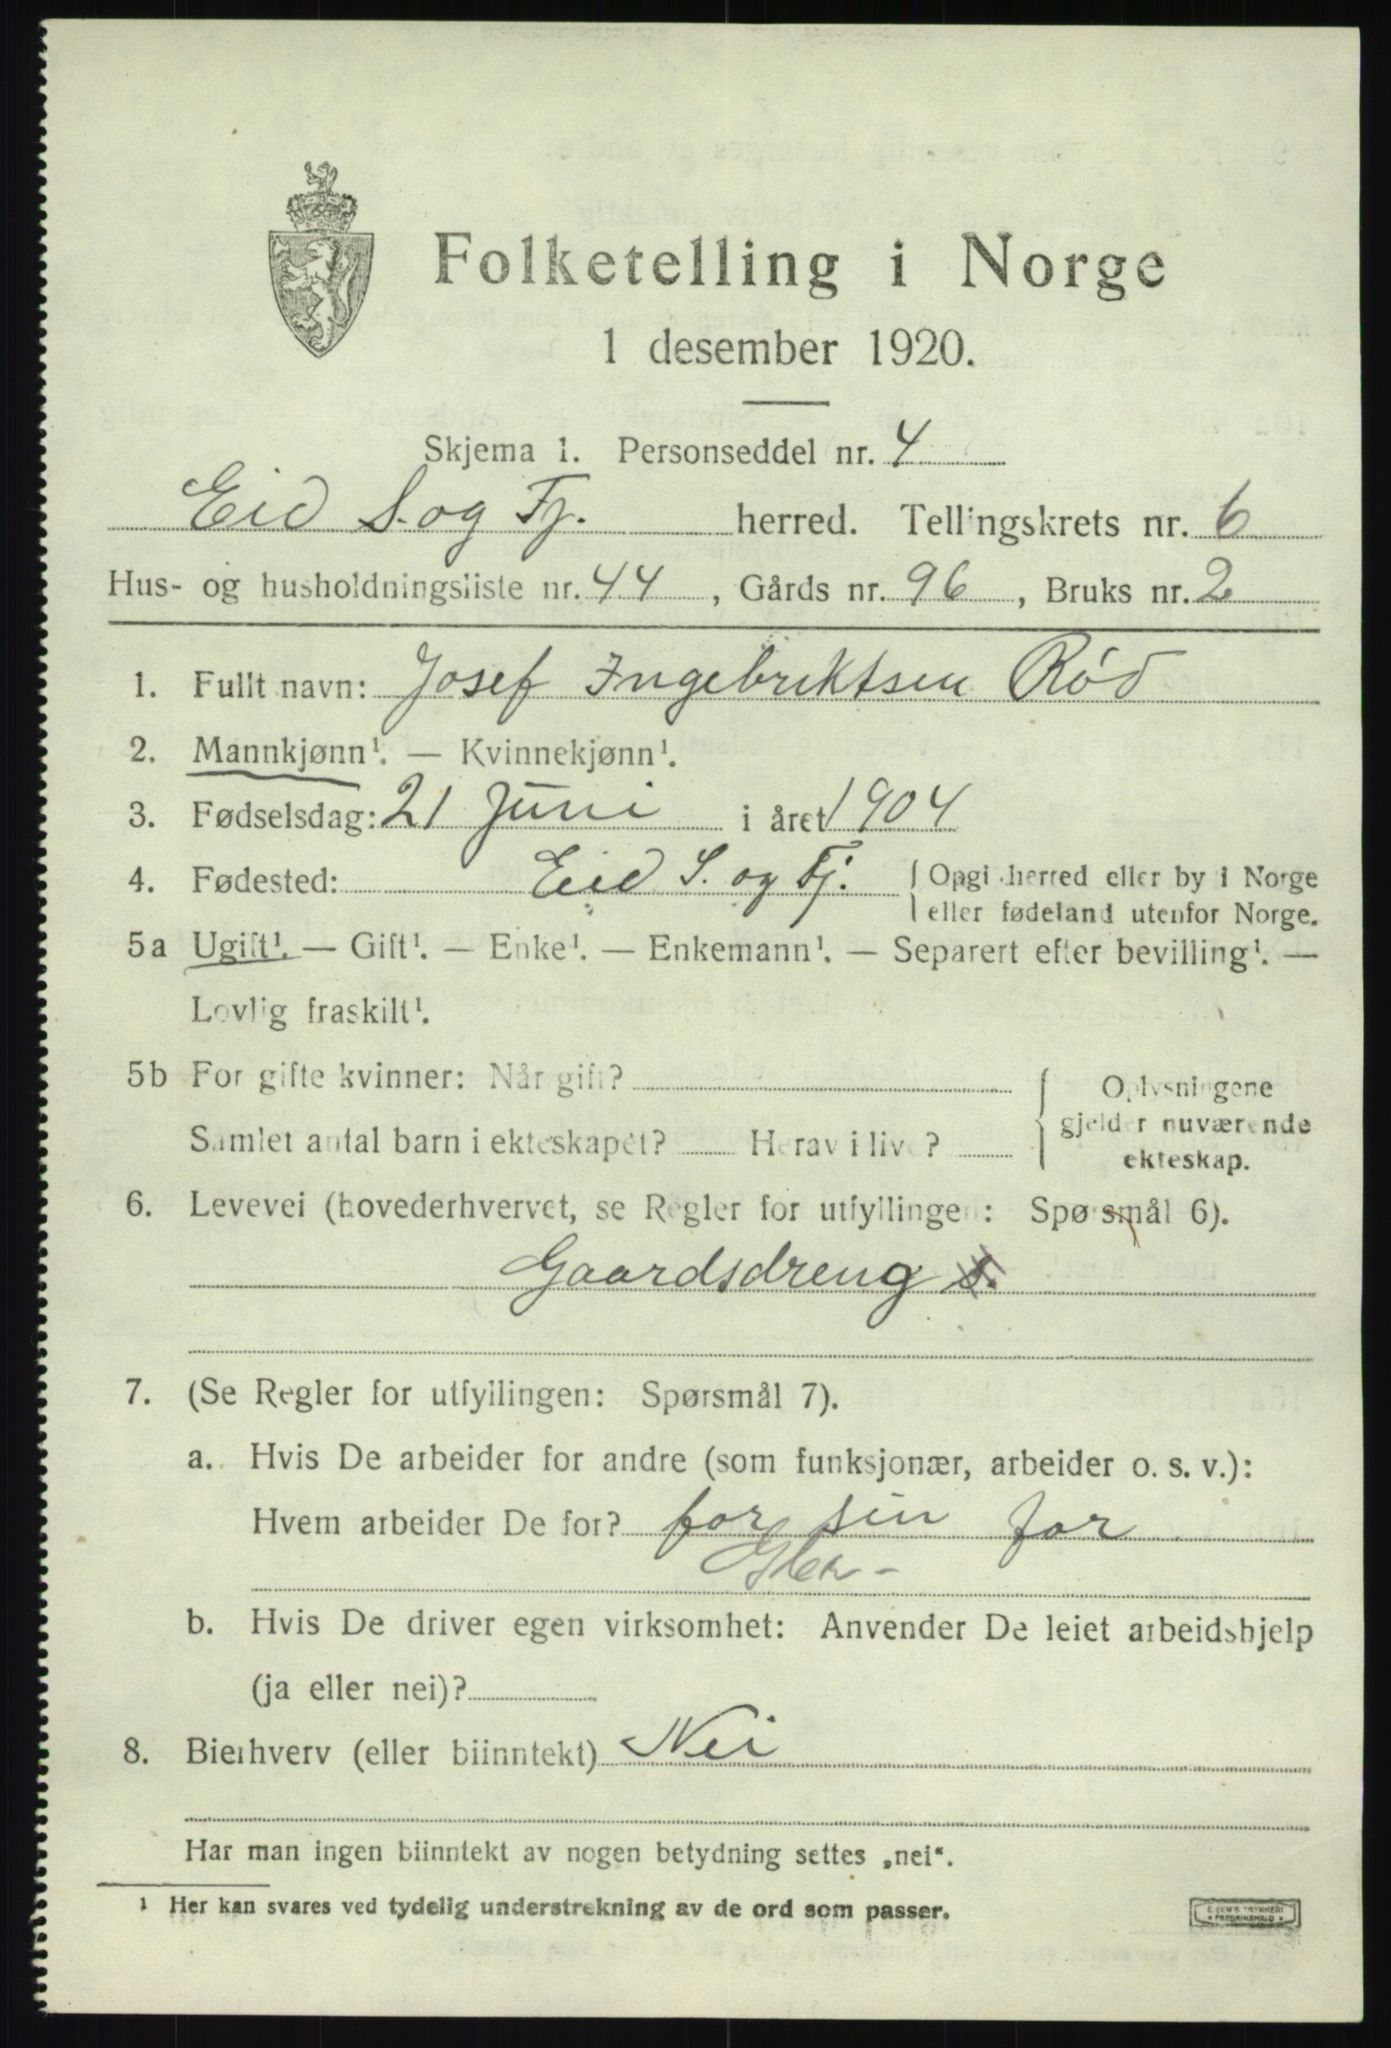 Folketelling i Norge
1 desember 1920.
Skjema 1. Personseddel nr. 4
Eid S. og Fj. herred. Tellingskrets nr. 6
Hus- og husholdningsliste nr. 44, Gårds nr. 96, Bruks nr. 2
1. Fullt navn: Josef Ingebriktsen Rød
2. Mannkjønn¹. — Kvinnekjønn¹.
3. Fødselsdag: 21 Juni i året 1904
4. Fødested: Eid S. og Fj. Opgi herred eller by i Norge
eller fødeland utenfor Norge.
5a Ugift¹. — Gift¹. — Enke¹. — Enkemann¹. — Separert efter bevilling¹. —
Lovlig fraskilt¹.
5b For gifte kvinner: Når gift? Oplysningene
gjelder nuværende
Samlet antal barn i ekteskapet? Herav i live?
ekteskap.
6. Levevei (hovederhvervet, se Regler for utfyllingen: Spørsmål 6).
Gaardsdreng s.
7. (Se Regler for utfyllingen: Spørsmål 7).
a. Hvis De arbeider for andre (som funksjonær, arbeider o. s. v.):
Hvem arbeider De for? for sin far
b. Hvis De driver egen virksomhet: Anvender De leiet arbeidshjelp
(ja eller nei)?
8. Bierhverv (eller biinntekt) Nei
Har man ingen biinntekt av nogen betydning settes „nei“.
¹ Her kan svares ved tydelig understrekning av de ord som passer.